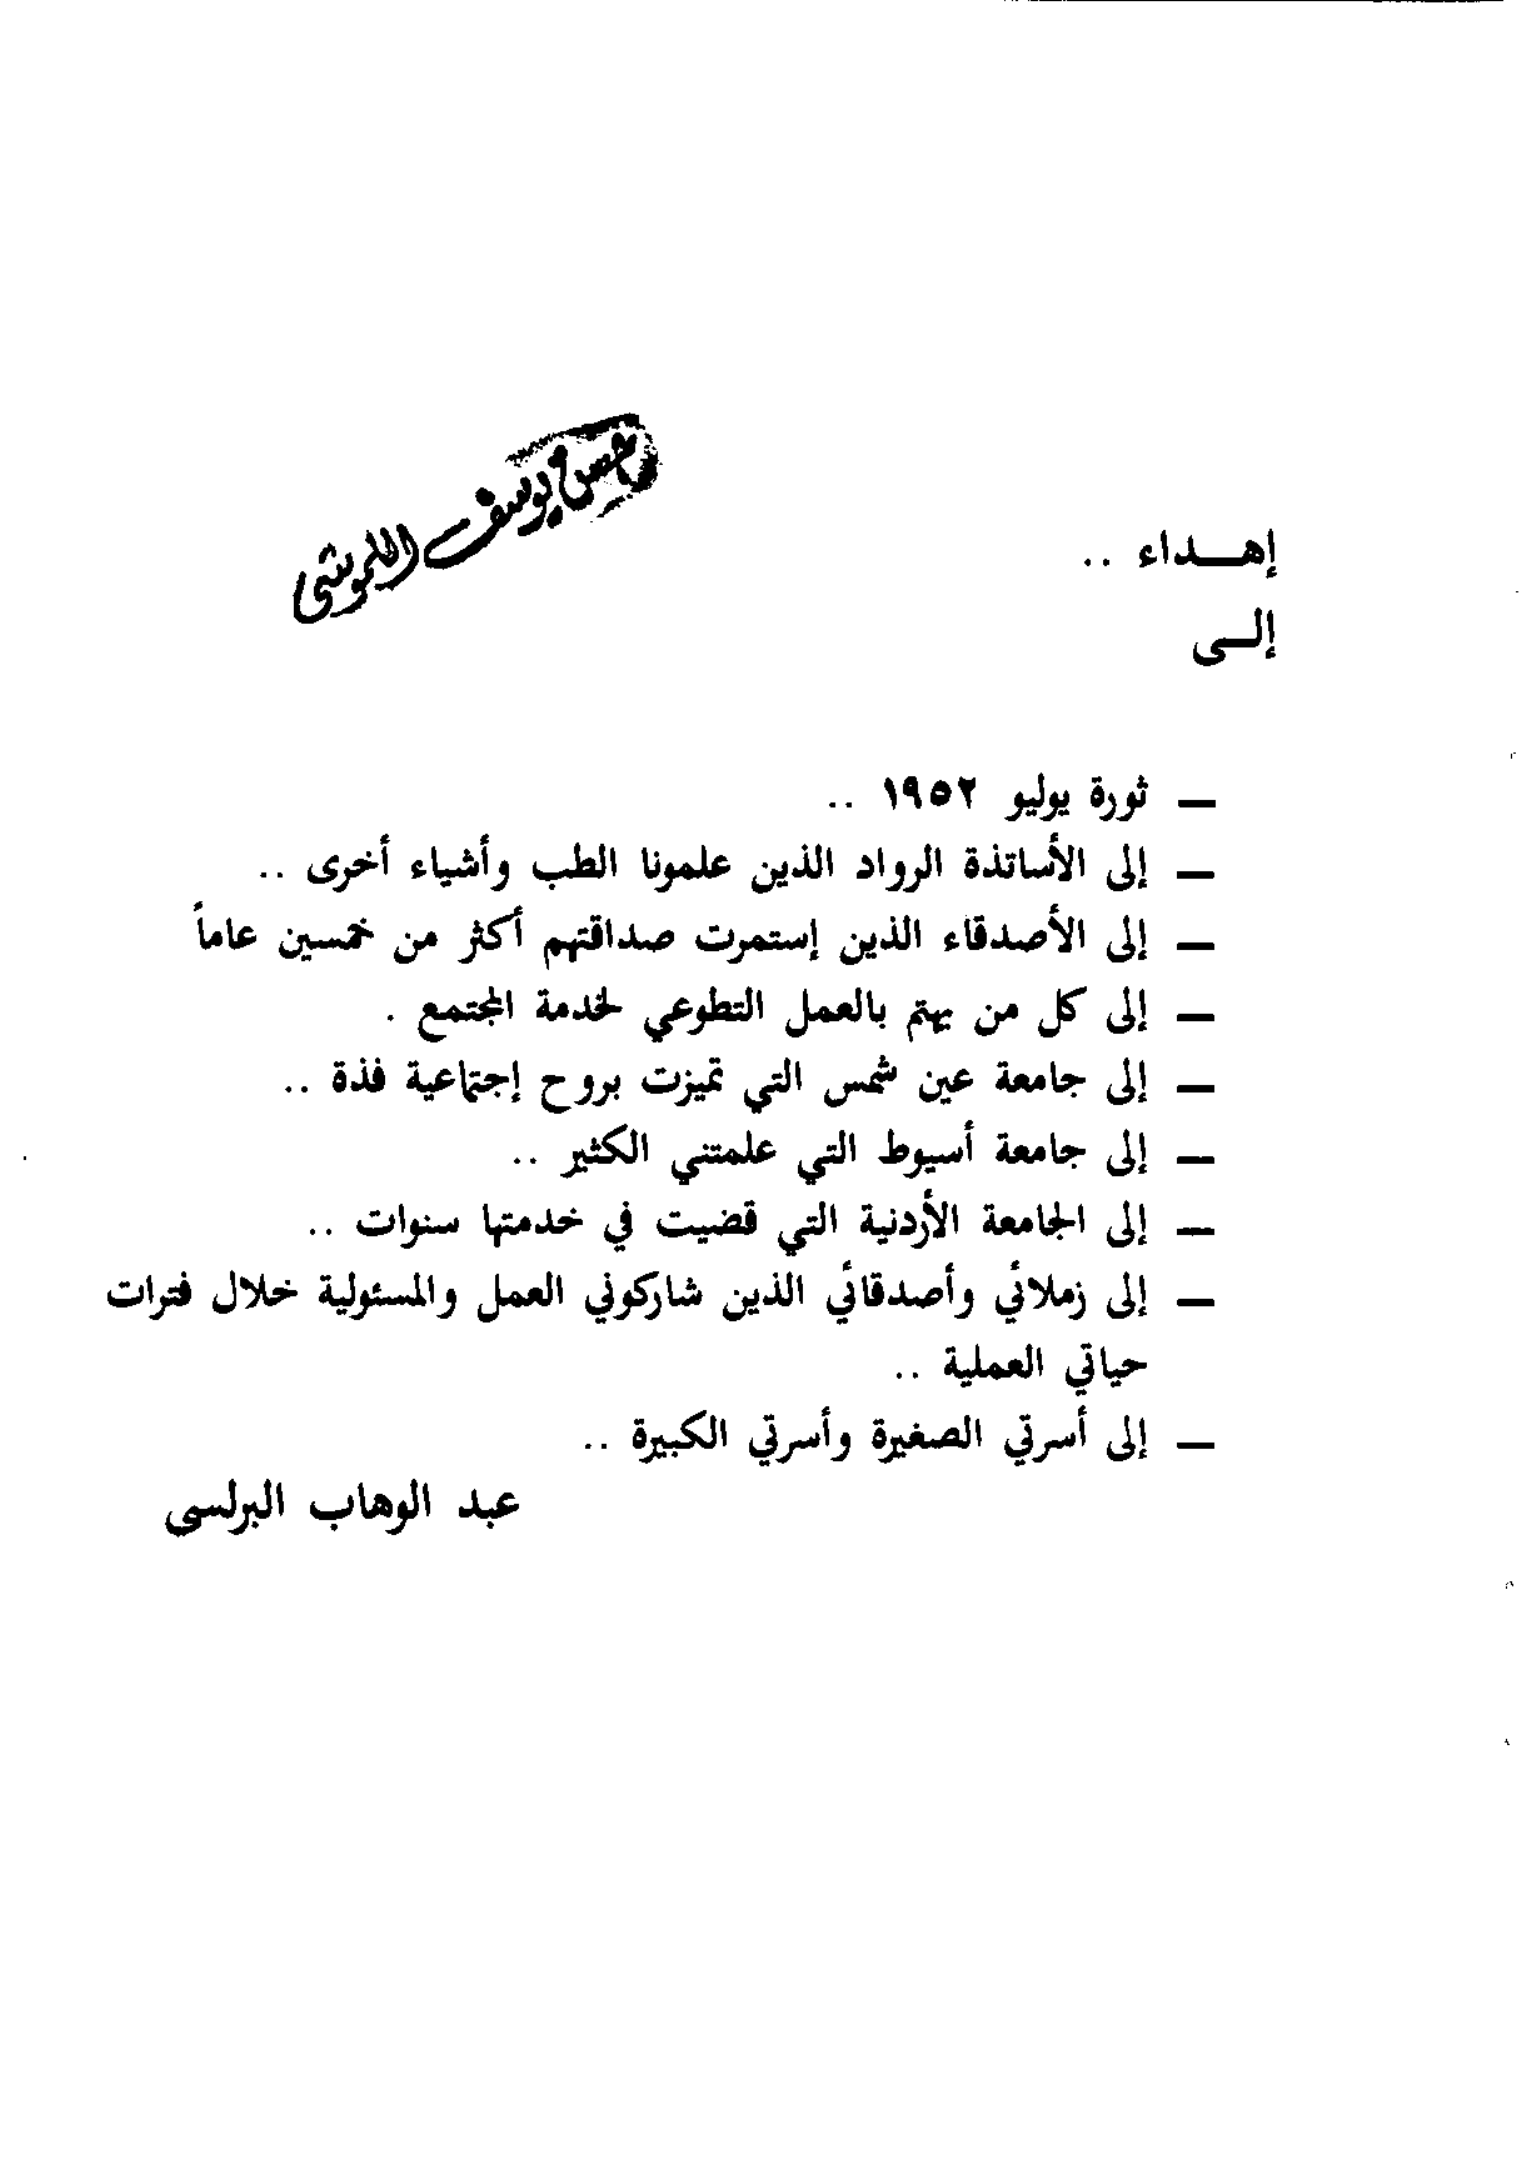 يوسف
إهـــداء ..
إلــى
— ثورة يوليو ١٩٥٢ ..
— إلى الأساتذة الرواد الذين علمونا الطب وأشياء أخرى ..
— إلى الأصدقاء الذين إستمرت صداقتهم أكثر من خمسين عاماً
— إلى كل من يهتم بالعمل التطوعي لخدمة المجتمع .
— إلى جامعة عين شمس التي تميزت بروح إجتماعية فذة ..
— إلى جامعة أسيوط التي علمتني الكثير ..
— إلى الجامعة الأردنية التي قضيت في خدمتها سنوات ..
— إلى زملائي وأصدقائي الذين شاركوني العمل والمسئولية خلال فترات
حياتي العملية ..
— إلى أسرتي الصغيرة وأسرتي الكبيرة ..
عبد الوهاب البرلسى